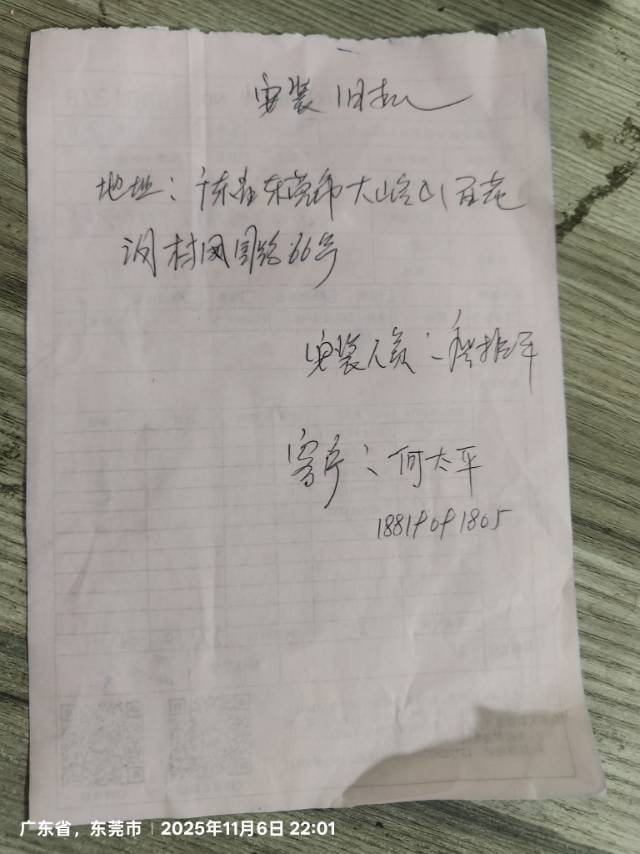 安装旧机
地址：广东省东莞市大岭山百花
洞村园路66号
安装人员：
客户：何太平
1881
广东省，东莞市 | 2025年11月6日 22:01